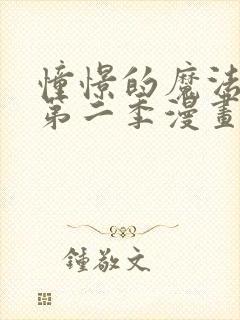 憧憬的魔法
第二季漫畫
鍾敬文